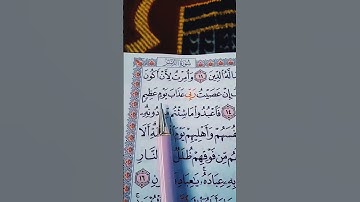 سُورَةُ الزُّمَرِ
لَّهُ ٱلدِّينَ ١١ وَأُمِرْتُ لِأَنْ أَكُونَ
إِنْ عَصَيْتُ رَبِّي عَذَابَ يَوْمٍ عَظِيمٍ
١٤ فَٱعْبُدُوا۟ مَا شِئْتُم دُونِهِۦ
نفُسَهُمْ وَأَهْلِيهِمْ يَوْمَ أَلَا
هُم مِّن فَوْقِهِمْ ظُلَلٌ ٱلنَّارِ
بِهِۦ عِبَادَهُۥ يَٰعِبَادِ ١٦